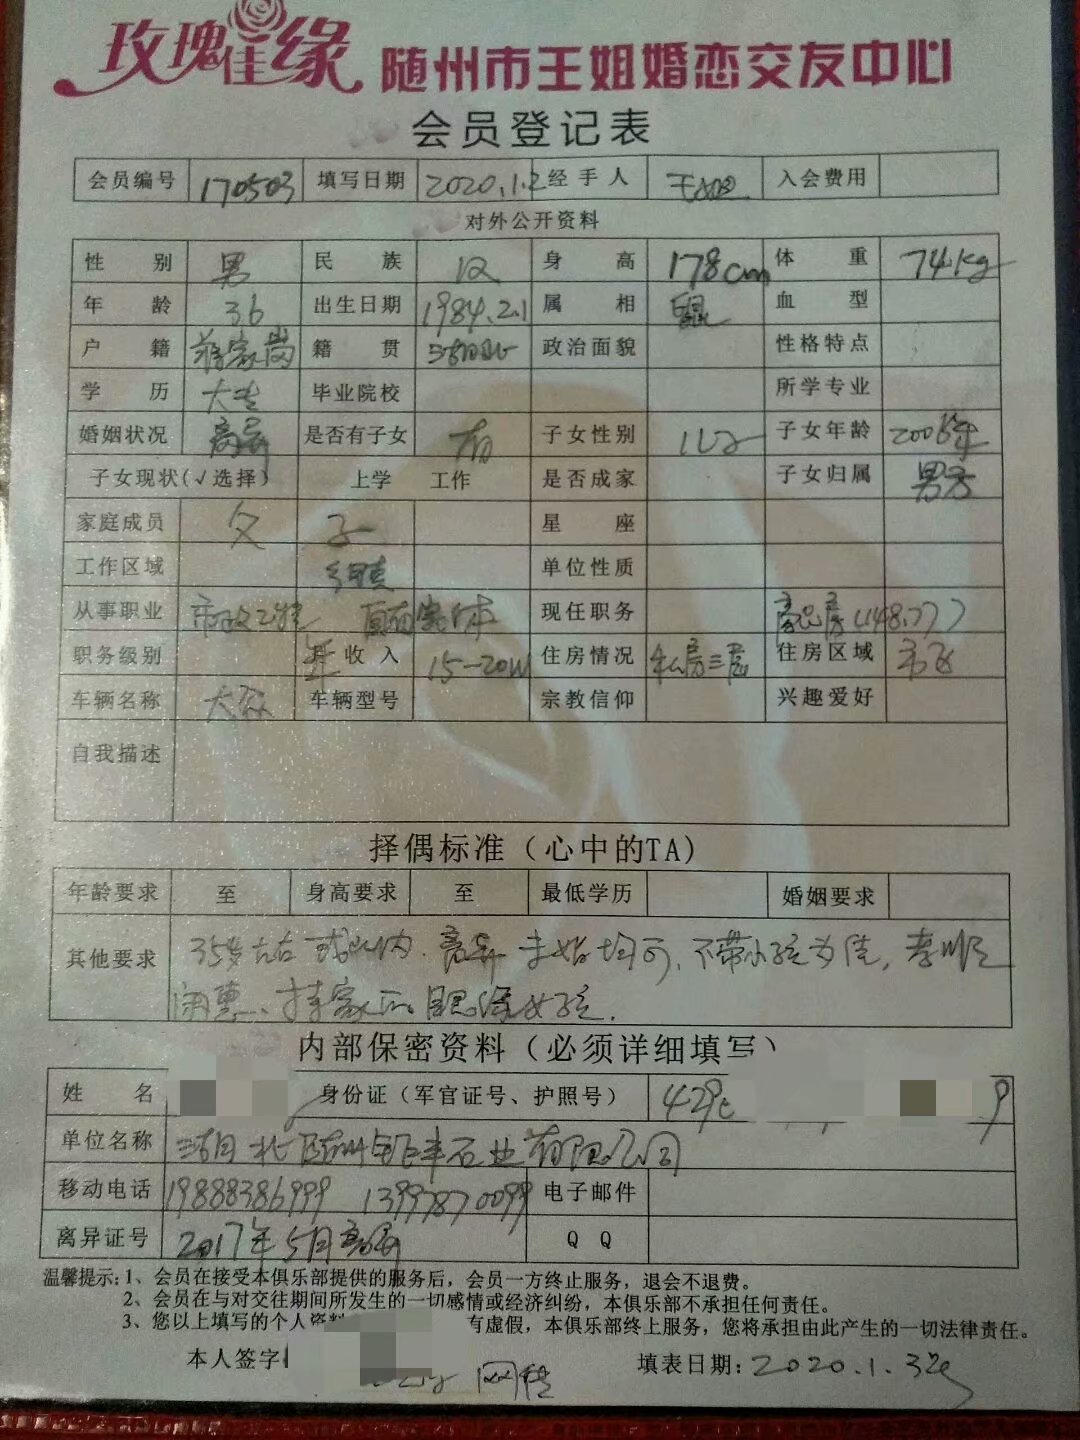 玫瑰佳缘 随州市王姐婚恋交友中心
会员登记表
会员编号 170503 填写日期 2020.1.2 经手人 王姐 入会费用
对外公开资料
性别 男 民族 汉 身高 178cm 体重 74kg
年龄 36 出生日期 1984.2.1 属相 鼠 血型
户籍 蒋家岗 籍贯 湖北 政治面貌 性格特点
学历 大专 毕业院校 所学专业
婚姻状况 离异 是否有子女 有 子女性别 儿子 子女年龄 2006年
子女现状(√选择) 上学 工作 是否成家 子女归属 男方
家庭成员 父 子 星座
工作区域 单位性质
从事职业 市政工程 现任职务
职务级别 年收入 15-20W 住房情况 私房三层 住房区域
车辆名称 大众 车辆型号 宗教信仰 兴趣爱好
自我描述
择偶标准（心中的TA)
年龄要求 至 身高要求 至 最低学历 婚姻要求
其他要求 35岁左右或以内.离异未婚均可,不带小孩为佳,孝顺
贤惠、持家的 女孩.
内部保密资料（必须详细填写）
姓名 身份证（军官证号、护照号） 429 9
单位名称 湖北随州 石业有限公司
移动电话 19888386999 13997870099 电子邮件
离异证号 2017年5月离异 QQ
温馨提示:1、会员在接受本俱乐部提供的服务后，会员一方终止服务，退会不退费。
2、会员在与对交往期间所发生的一切感情或经济纠纷，本俱乐部不承担任何责任。
3、您以上填写的个人资料 有虚假，本俱乐部终上服务，您将承担由此产生的一切法律责任。
本人签字 网传 填表日期:2020.1.3号